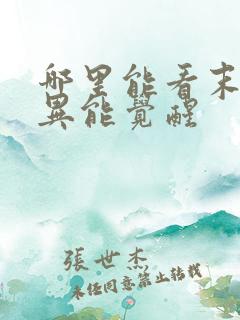 哪里能看末
異能覺醒
張世杰
未经同意禁止转载